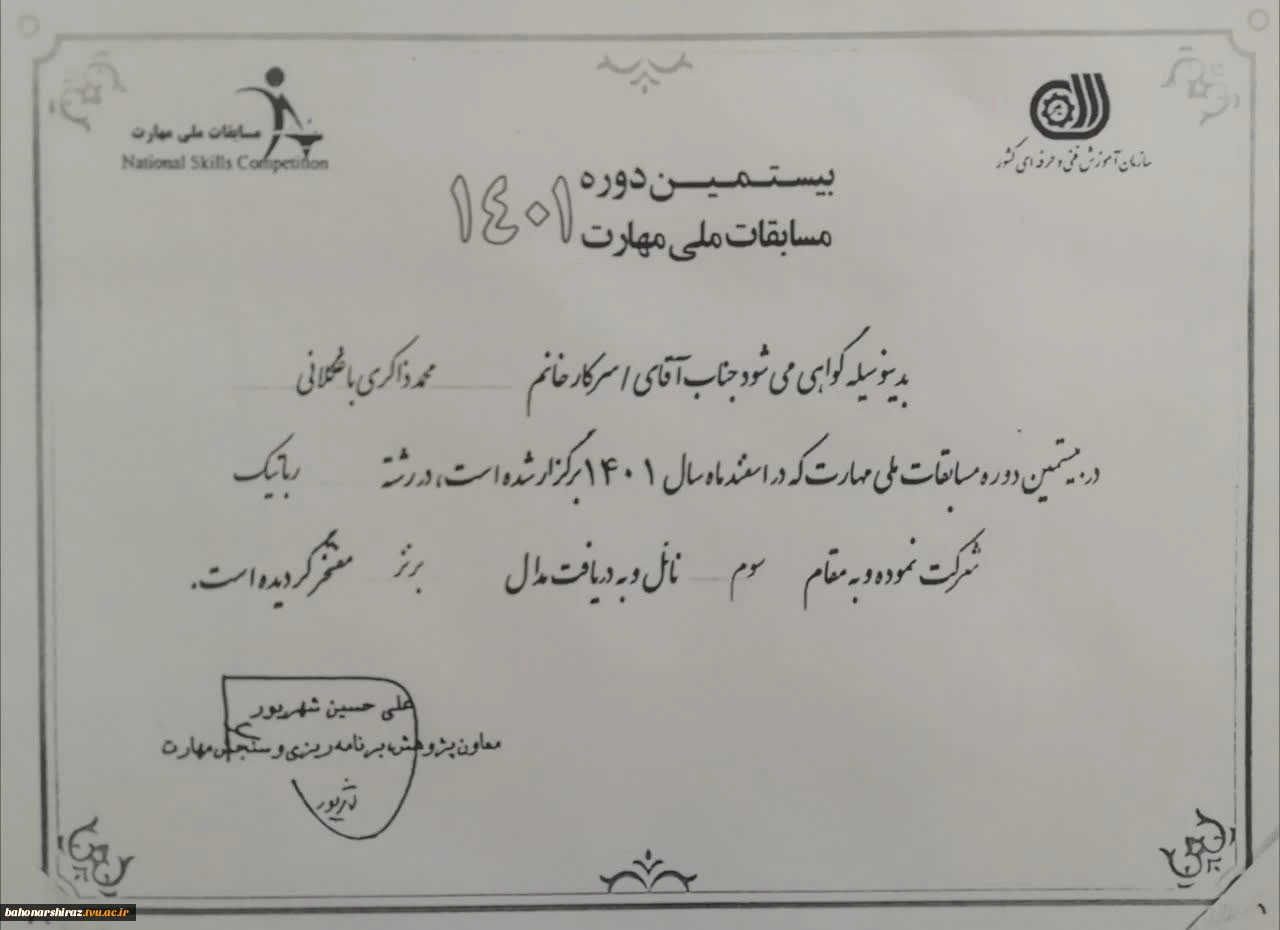 سازمان آموزش فنی و حرفه ای کشور
مسابقات ملی مهارت
National Skills Competition
بیستمین دوره
مسابقات ملی مهارت ۱۴۰۱
بدینوسیله گواهی می شود جناب آقای / سرکار خانم محمد ذاکری باغکلانی
در بیستمین دوره مسابقات ملی مهارت که در اسفند ماه سال ۱۴۰۱ برگزار شده است، در رشته رباتیک
شرکت نموده و به مقام سوم نائل و به دریافت مدال برنز مفتخر گردیده است.
علی حسین شهریور
معاون پژوهش، برنامه ریزی و سنجش مهارت
bahonarshiraz.tvu.ac.ir
۱